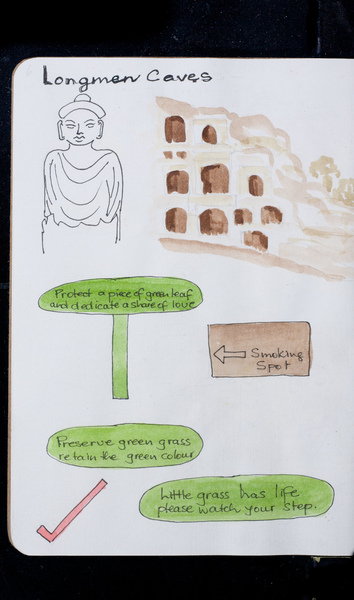 Longmen Caves
Protect a piece of green leaf
and dedicate a share of love
Smoking
Spot
Preserve green grass
retain the green colour
Little grass has life
please watch your step.